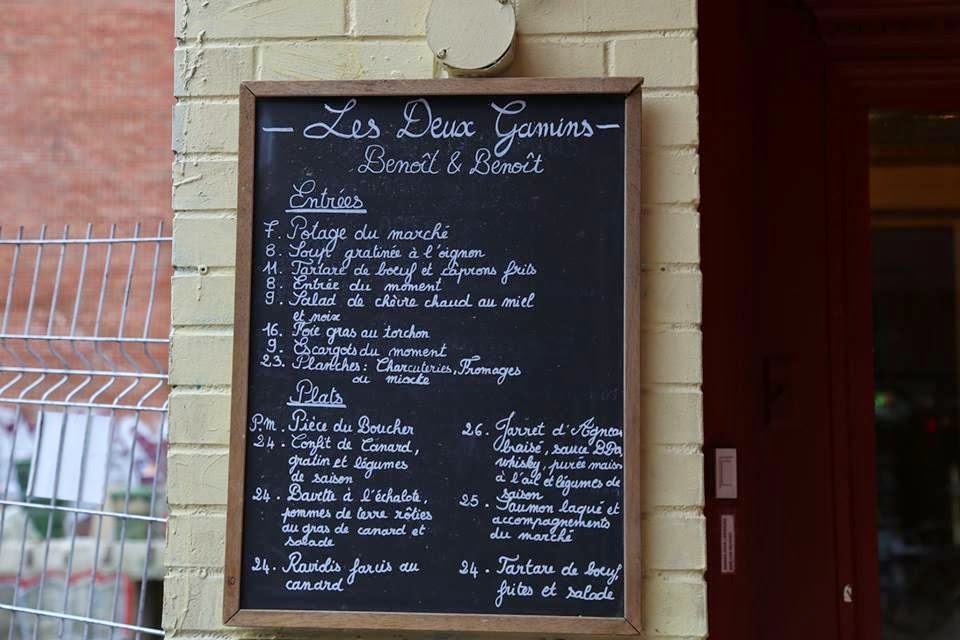 — Les Deux Gamins —
Benoît & Benoît
Entrées
7. Potage du marché
8. Soup gratinée à l'oignon
11. Tartare de boeuf et câprons frits
8. Entrée du moment
9. Salad de chèvre chaud au miel
et noix
16. Foie gras au torchon
9. Escargots du moment
23. Planches: Charcuteries, Fromages
ou mixte
Plats
P.M. Pièce du Boucher
24. Confit de Canard,
gratin et légumes
de saison
24. Bavette à l'échalote,
pommes de terre rôties
au gras de canard et
salade
24. Raviolis farcis au
canard
26. Jarret d'Agneau
braisé, sauce BBQ
whisky, purée maison
à l'ail et légumes de
saison
25. Saumon laqué et
accompagnements
du marché
24. Tartare de boeuf,
frites et salade